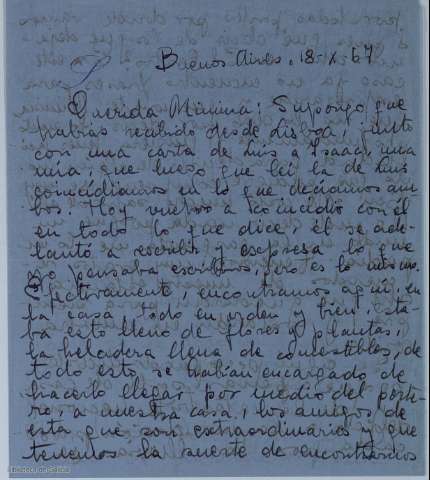 Buenos Aires, 18-X-67
Querida Mimina: Supongo que
habrás recibido desde Lisboa, junto
con una carta de Luis a Isaac, una
mía, que luego que leí la de Luis
coincidíamos en lo que decíamos am
bos. Hoy vuelvo a coincidir con él
en todo lo que dice, él se ade-
lantó a escribir y expresa lo que
yo pensaba escribiros, pero es lo mismo.
Efectivamente, encontramos aquí, en
la casa, todo en orden y bien, esta-
ba esto lleno de flores y plantas,
la heladera llena de comestibles, de
todo esto se habían encargado de
hacerlo llegar por medio del porte-
ro, a nuestra casa, los amigos de
esta que son extraordinarios y que
tenemos la suerte de encontrarnos
Biblioteca de Galicia